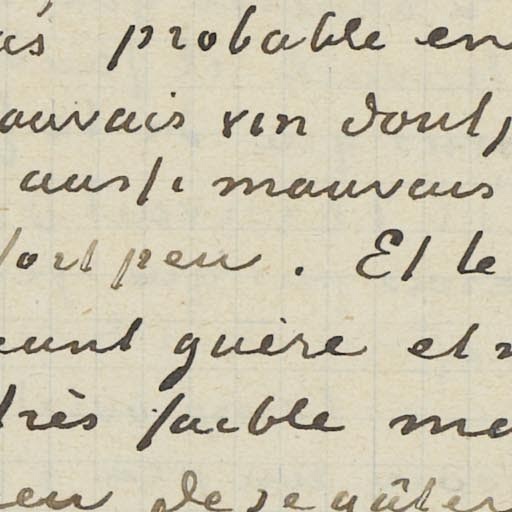 as probable en
auvais vin dont
aussi mauvais
fort peu. Et le
guère et
très faible
de se gâter